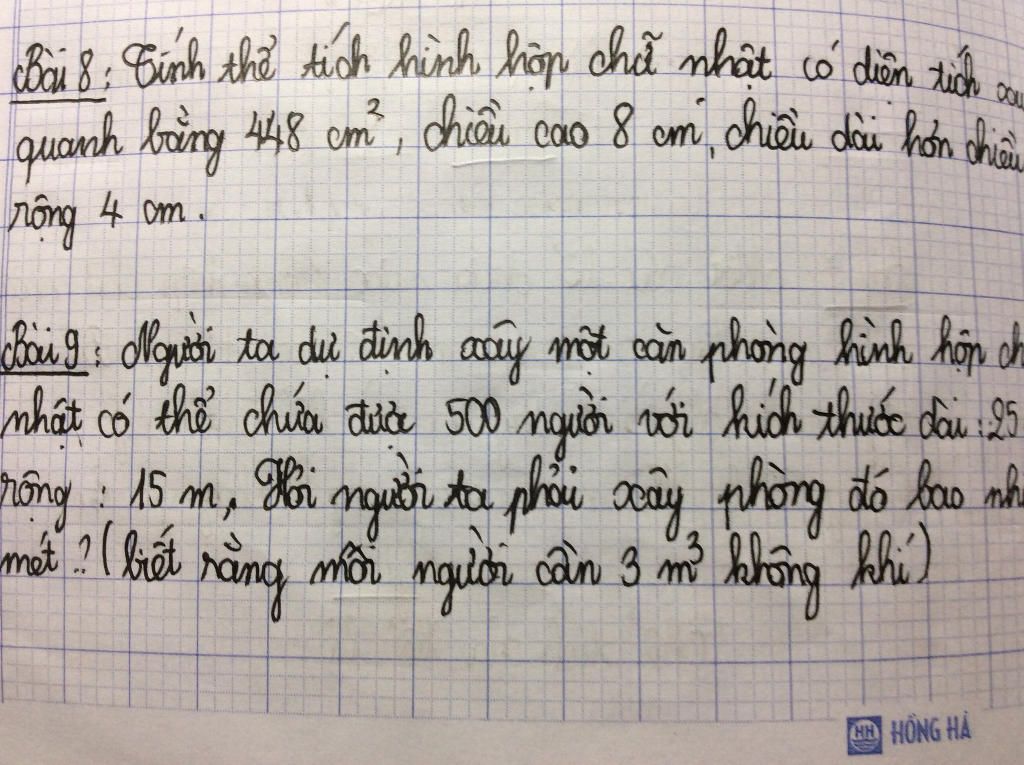 Bài 8 : Tính thể tích hình hộp chữ nhật có diện tích
quanh bằng 448 cm², chiều cao 8 cm, chiều dài hơn chiều
rộng 4 cm.
Bài 9 : Người ta dự định xây một căn phòng hình hộp
nhật có thể chứa được 500 người với kích thước dài : 25
rộng : 15 m, Hỏi người ta phải xây phòng đó bao
mét ? (biết rằng mỗi người cần 3 m³ không khí)
HH HỒNG HÀ